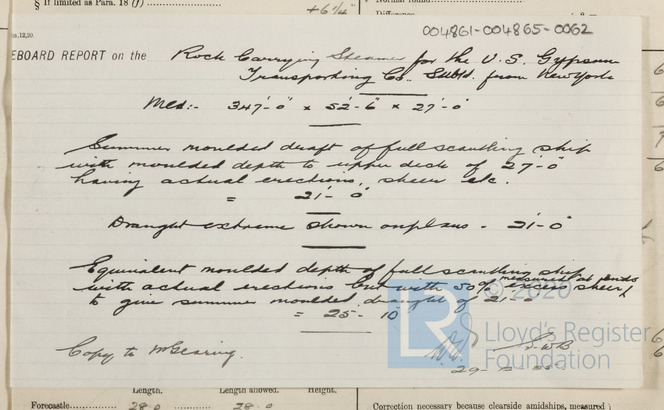 § If limited as Para. 18 (f)
+6¼"
004861-004865-0062
EBOARD REPORT on the
Rock Carrying Steamer for the U.S. Gypsum
Transporting Co. Subtd. from New York
Mld:- 347'-0" x 52'-6" x 27'-0"
Summer moulded draft of full scantling ship
with moulded depth to upper deck of 27'-0"
having actual erections, sheer etc.
= 21'-0"
Draught extreme shown on plans - 21'-0"
Equivalent moulded depth of full scantling ship
with actual erections but with 50% excess sheer, measured at ends
to give summer moulded draught of 21'-0"
= 25'-10"
Copy to McGearing.
© 2020
Lloyd's Register
Foundation
Length. Length allowed. Height.
Forecastle 28.0 28.0
Correction necessary because clearside amidships, measured